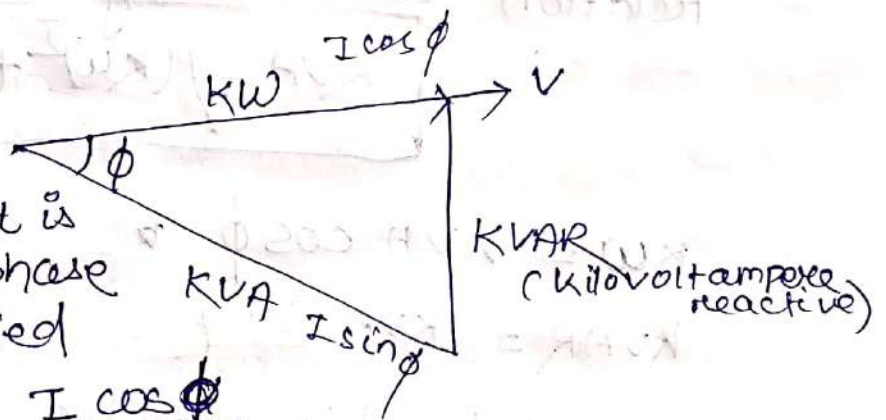 I cos ϕ
KW
V
ϕ
t is
phase
ed
KVA
I sin ϕ
KVAR
(Kilovoltampere
reactive)
I cos ϕ